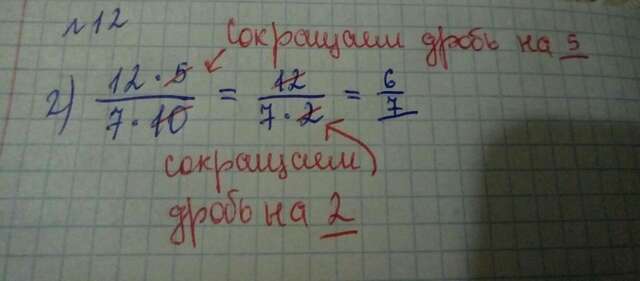 №12
сокращаем дробь на 5
г) 12·5/7·10 = 12/7·2 = 6/7
сокращаем
дробь на 2